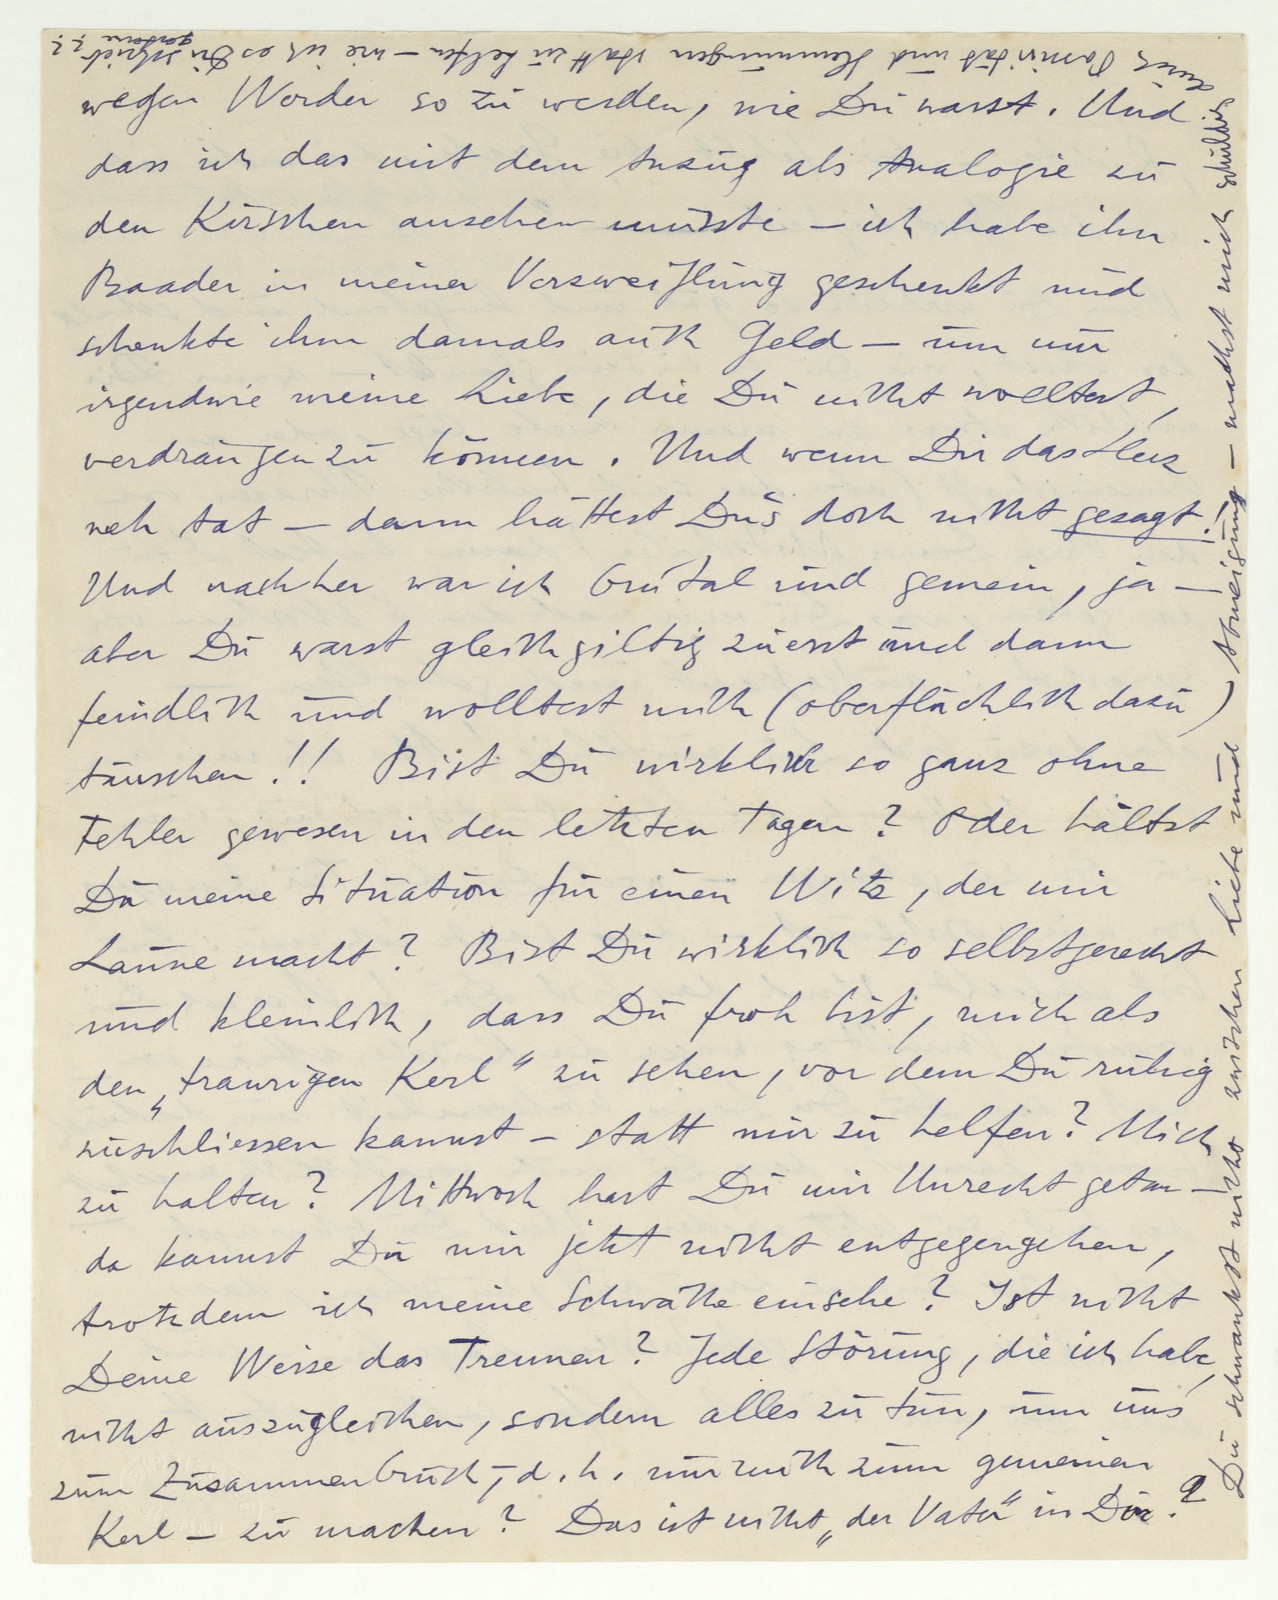 wegen Worder so zu werden, wie Du warst. Und
dass ich das mit dem Anzug als Analogie zu
den Kirschen ansehen müsste – ich habe ihn
Baader in meiner Verzweiflung geschenkt und
schenkte ihm damals auch Geld – um nur
irgendwie meine Liebe, die Du nicht wolltest,
verdrängen zu können. Und wenn Dir das Herz
weh tat – dann hättest Du's doch nicht gesagt!
Und nachher war ich brutal und gemein, ja –
aber Du warst gleichgiltig zuerst und dann
feindlich und wolltest mich (oberflächlich dazu)
täuschen!! Bist Du wirklich so ganz ohne
Fehler gewesen in den letzten Tagen? Oder hältst
Du meine Situation für einen Witz, der mir
Laune macht? Bist Du wirklich so selbstgerecht
und kleinlich, dass Du froh bist, mich als
den „traurigen Kerl“ zu sehen, vor dem Du ruhig
zuschliessen kannst – statt mir zu helfen? Mich
zu halten? Mittwoch hast Du mir Unrecht getan –
da kannst Du mir jetzt nicht entgegengehen,
trotzdem ich meine Schwäche einsehe? Ist nicht
Deine Weise das Trennen? Jede Störung, die ich habe,
nicht auszugleichen, sondern alles zu tun, um uns
zum Zusammenbruch, d. h. nur mich zum gemeinen
Kerl – zu machen? Das ist nicht „der Vater“ in Dir?
Du schwankst nicht zwischen Liebe und Abneigung – machst mich schuldig
durch Passivität und Hemmungen statt zu helfen – wie ich es Dir gestern schrieb??